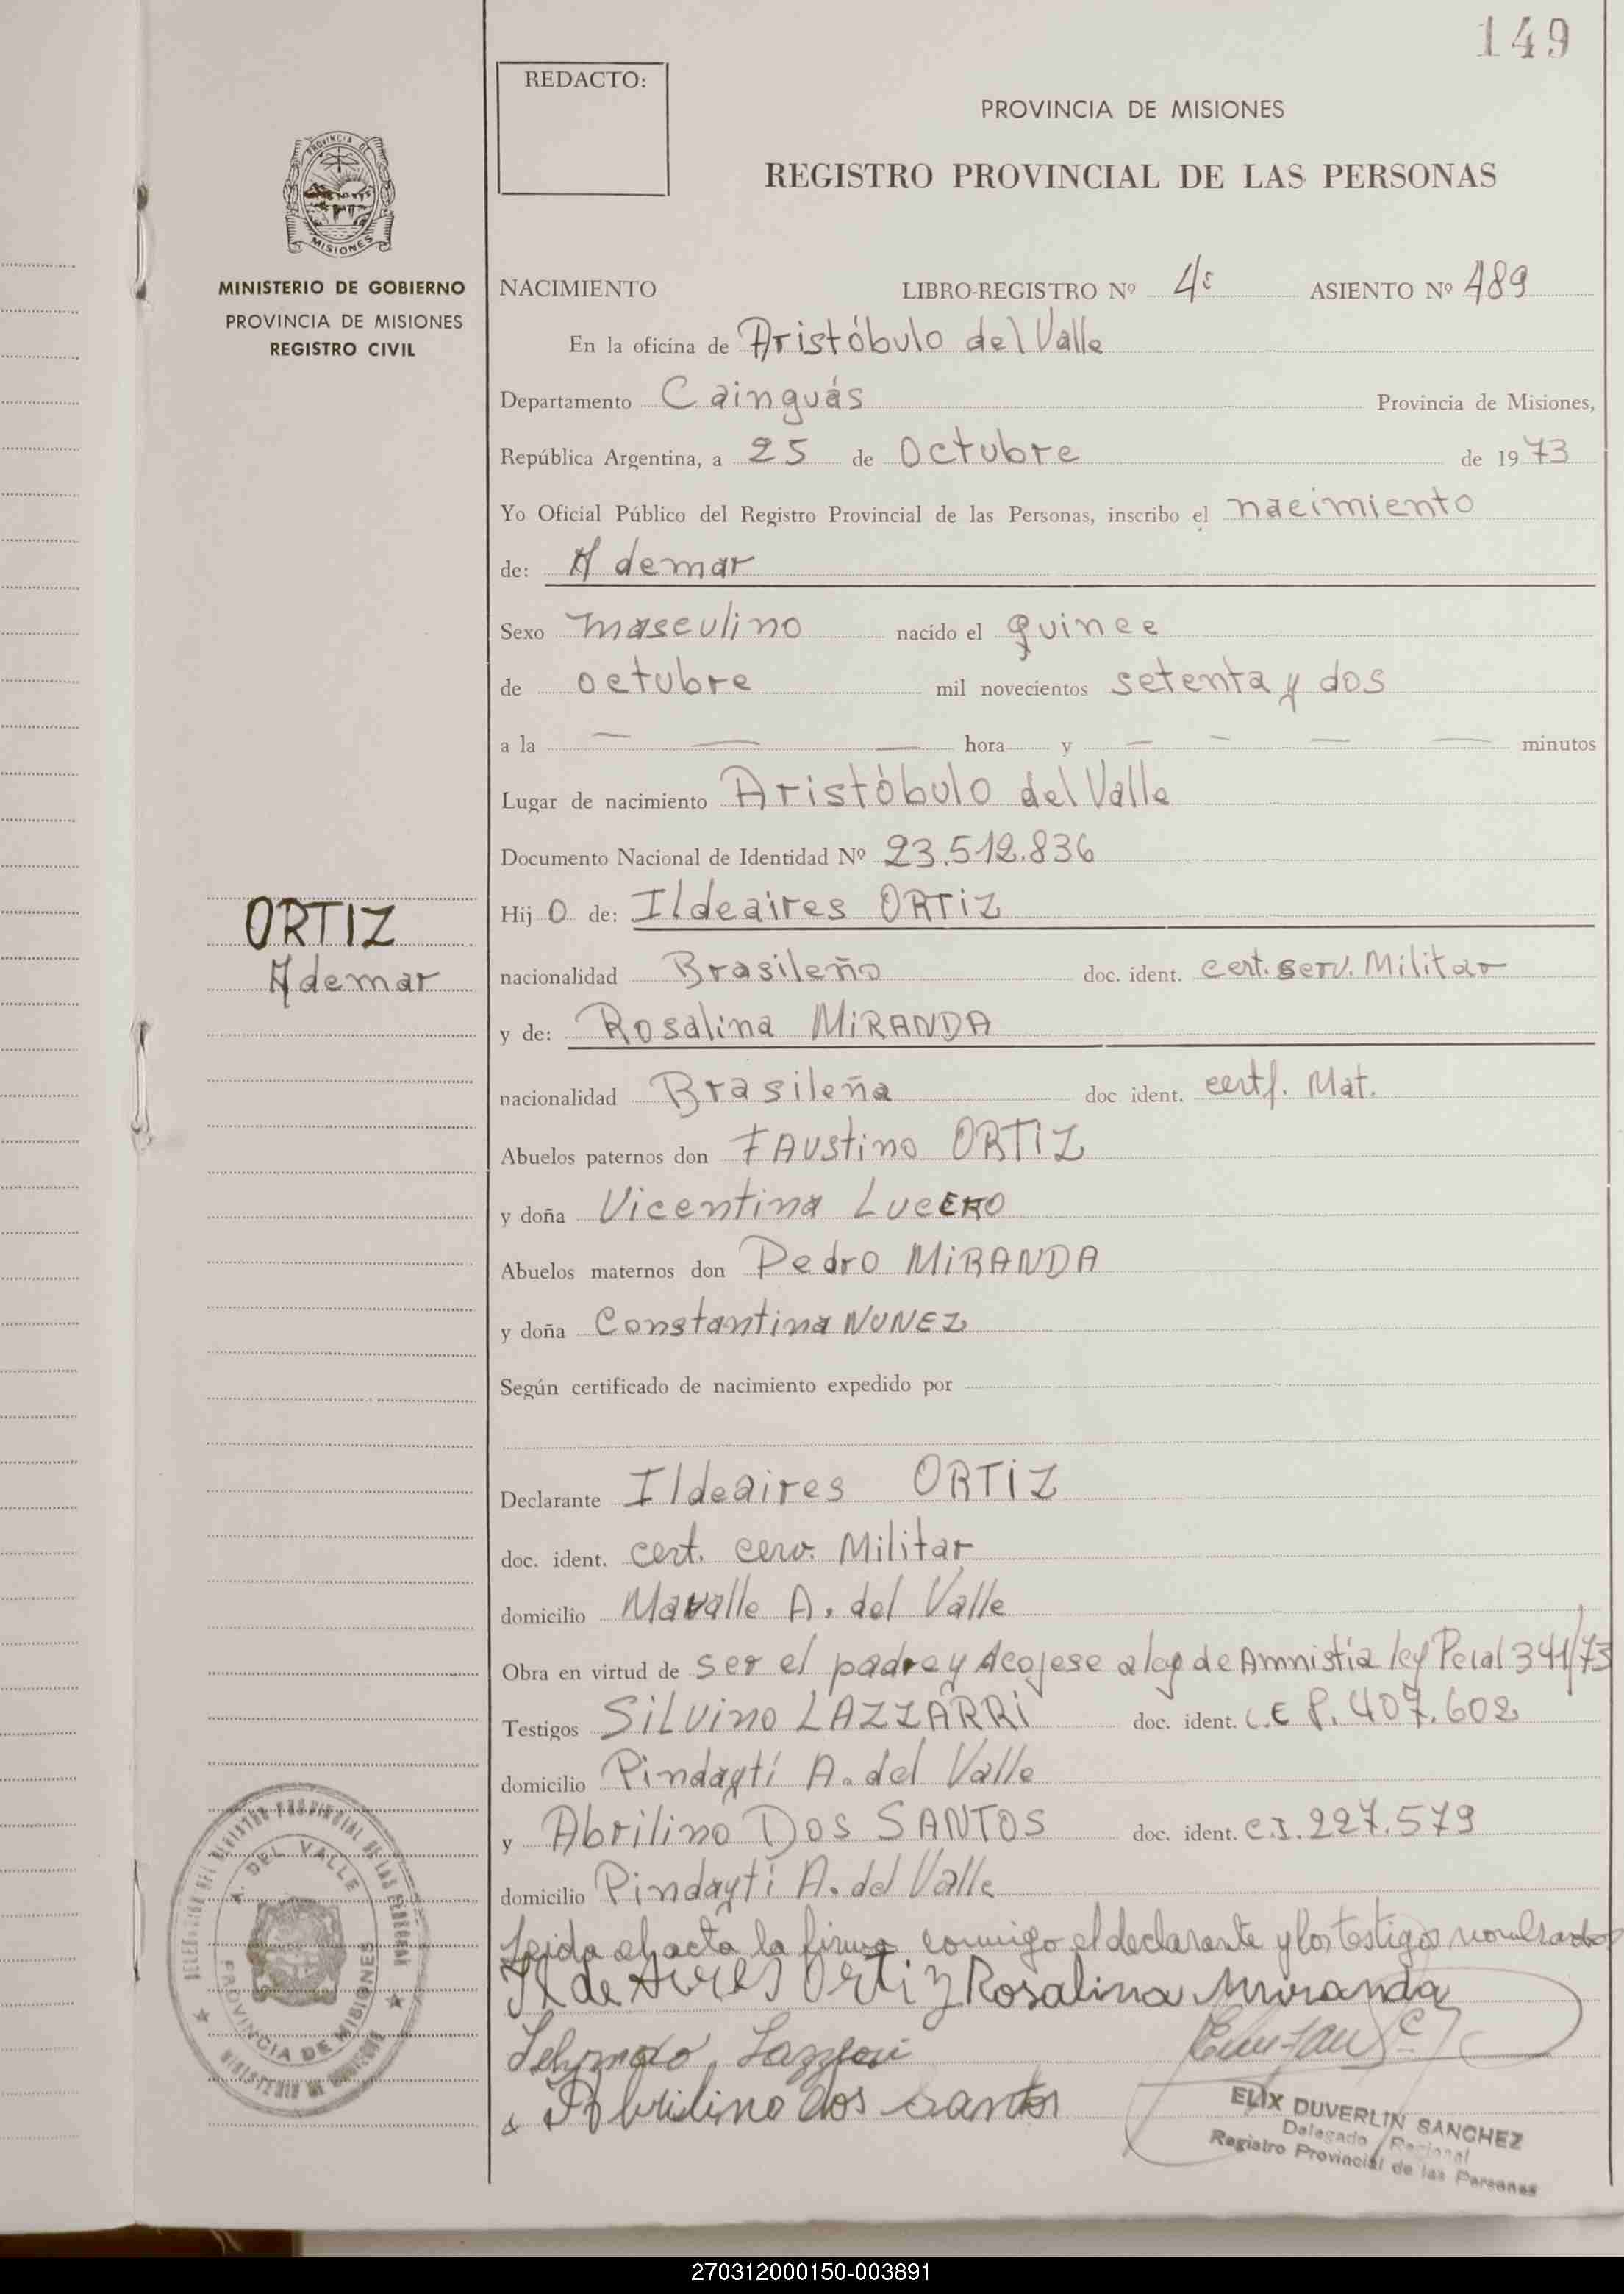 149
REDACTO:
PROVINCIA DE MISIONES
REGISTRO PROVINCIAL DE LAS PERSONAS
PROVINCIA DE
MISIONES
MINISTERIO DE GOBIERNO
PROVINCIA DE MISIONES
REGISTRO CIVIL
NACIMIENTO LIBRO-REGISTRO Nº 4º ASIENTO Nº 489
En la oficina de Aristóbulo del Valle
Departamento Cainguás Provincia de Misiones,
República Argentina, a 25 de Octubre de 1973
Yo Oficial Público del Registro Provincial de las Personas, inscribo el nacimiento
de: Ademar
Sexo masculino nacido el quince
de octubre mil novecientos setenta y dos
a la — — — hora y — — — — minutos
Lugar de nacimiento Aristóbulo del Valle
Documento Nacional de Identidad Nº 23.512.836
Hij o de: Ildeaires ORTIZ
ORTIZ
Ademar
nacionalidad Brasileño doc. ident. cert. serv. Militar
y de: Rosalina MIRANDA
nacionalidad Brasileña doc ident. certf. Mat.
Abuelos paternos don FAustino ORTIZ
y doña Vicentina LucERO
Abuelos maternos don Pedro MIRANDA
y doña Constantina NUNEZ
Según certificado de nacimiento expedido por
Declarante Ildeaires ORTIZ
doc. ident. cert. cerv. Militar
domicilio Mavalle A. del Valle
Obra en virtud de ser el padre y Acojese a ley de Amnistía ley Pcial 341/73
Testigos SiLvino LAZZARRI doc. ident. C.E P. 407.602
domicilio Pindaytí A. del Valle
y Abrilino DOS SANTOS doc. ident. C.I. 227.579
domicilio Pindaytí A. del Valle
Leida el acta la firma conmigo el declarante y los testigos nombrados
Il de Aires Ortiz Rosalina Miranda
Abrilino dos Santos
DELEGACION DEL REGISTRO PROVINCIAL DE LAS PERSONAS
A. DEL VALLE
PROVINCIA DE MISIONES
MINISTERIO DE GOBIERNO
ELIX DUVERLIN SANCHEZ
Delegado Regional
Registro Provincial de las Personas
270312000150-003891